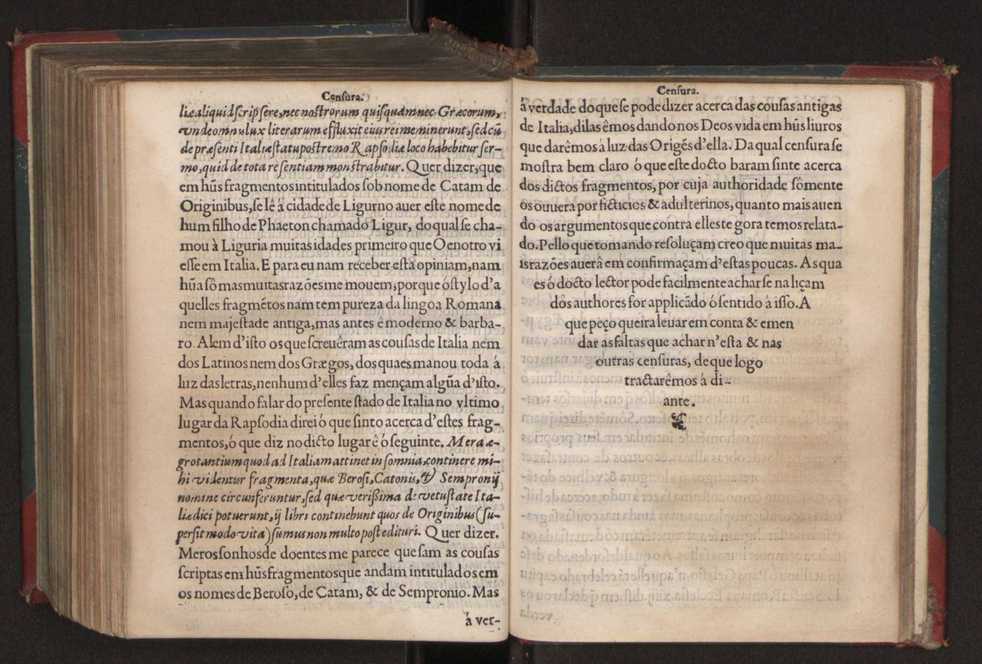 Censura.
liæ aliquid scripsere, nec nostrorum quisquam nec Græcorum,
vnde omnis lux literarum effluxit eius rei meminerunt, sed cũ
de præsenti Italiæ statu postremo Rapsodiæ loco habebitur ser-
mo, quid de tota re sentiam monstrabitur. Quer dizer, que
em hũs fragmentos intitulados sob nome de Catam de
Originibus, se lé á cidade de Ligurno auer este nome de
hum filho de Phaeton chamado Ligur, do qual se cha-
mou à Liguria muitas idades primeiro que Oenotro vi
esse em Italia. E para eu nam receber esta opiniam, nam
hũa sô mas muitas razões me movem, porque ó stylo d'a
quelles fragmẽtos nam tem pureza da lingoa Romana
nem majestade antiga, mas antes é moderno & barba-
ro. Alem d'isto os que screuéram as cousas de Italia nem
dos Latinos nem dos Græegos, dos quaes manou toda á
luz das letras, nenhum d'elles faz mençam algũa d'isto.
Mas quando falar do presente stado de Italia no vltimo
lugar da Rapsodia direi ó que sinto acerca d'estes frag-
mentos, ó que diz no dicto lugar é ó seguinte. Mera æ-
grotantium quod ad Italiam attinet in somnia, continere mi-
hi videntur fragmenta, quæ Berosi, Catonis, & Sempronij
nomine circunferuntur, sed quæ verißima de vetustate Ita-
liæ dici potuerunt, ij libri continebunt quos de Originibus (su-
persit modo vita) sumus non multo post edituri. Quer dizer.
Meros sonhos de doentes me parece que sam as cousas
scriptas em hũs fragmentos que andam intitulados em
os nomes de Beroso, de Catam, & de Sempronio. Mas
á ver-
Censura.
á verdade do que se pode dizer acerca das cousas antigas
de Italia, dilas êmos dando nos Deos vida em hũs liuros
que darêmos à luz das Origẽs d'ella. Da qual censura se
mostra bem claro ó que este docto baram sinte acerca
dos dictos fragmentos, por cuja authoridade sômente
os ouuera por ficticios & adulterinos, quanto mais auen
do os argumentos que contra elles te gora temos relata-
do. Pello que tomando resoluçam creo que muitas ma-
is razões auerá em confirmaçam d'estas poucas. As qua
es ó docto lector pode facilmente achar se na liçam
dos authores for applicãdo ó sentido à isso. A
que peço queira leuar em conta & emen
dar as faltas que achar n'esta & nas
outras censuras, de que logo
tractarêmos à di-
ante.